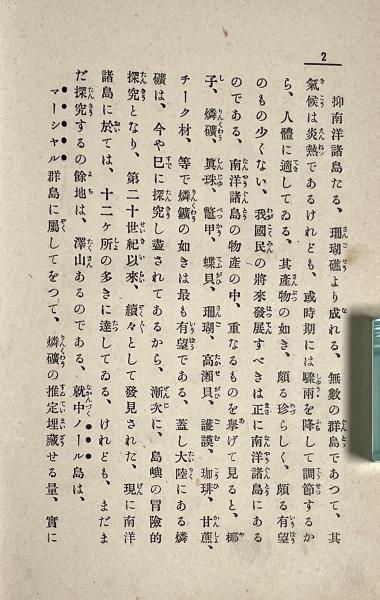 2
抑南洋諸島たる、珊瑚礁より成れる、無數の群島であつて、其
氣候は炎熱であるけれども、或時期には驟雨を降して調節するか
ら、人體に適してゐる、其產物の如き、頗る珍らしく、頗る有望
のもの少くない、我國民の將來發展すべきは正に南洋諸島にある
のである、南洋諸島の物產の中、重なるものを擧げて見ると、椰
子、燐礦、眞珠、鼈甲、蝶貝、珊瑚、高瀨貝、護謨、珈琲、甘蔗、
チーク材、等で燐鑛の如きは最も有望である、蓋し大陸にある燐
礦は、今や巳に探究し盡されてあるから、漸次に、島嶼の冒險的
探究となり、第二十世紀以來、續々として發見された、現に南洋
諸島に於ては、十二ヶ所の多きに達してゐる、けれども、まだま
だ探究するの餘地は、澤山あるのである、就中ノール島は、
マーシャル群島に屬してをつて、燐礦の推定埋藏せる量、實に